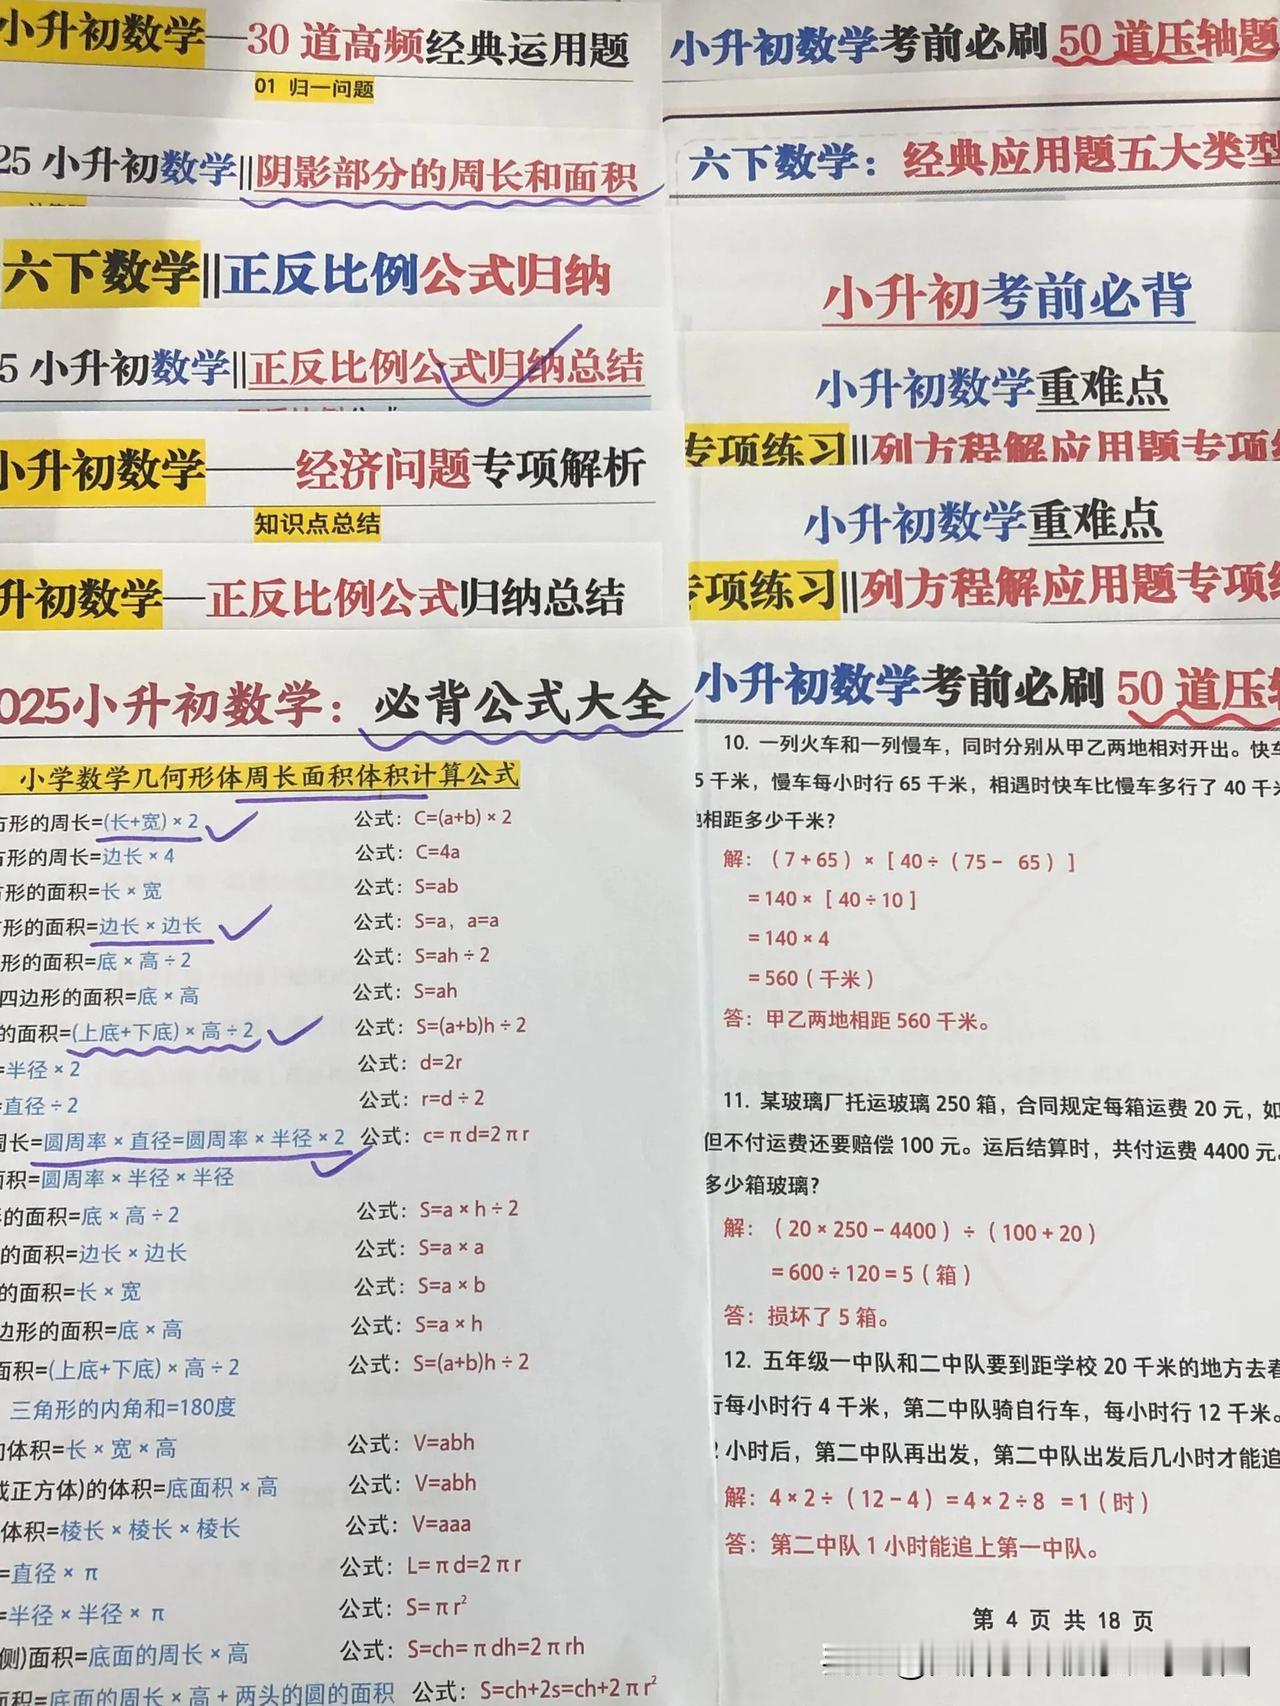 小升初数学—30 道高频经典运用题
01 归一问题
25 小升初数学||阴影部分的周长和面积
六下数学||正反比例公式归纳
5 小升初数学||正反比例公式归纳总结
小升初数学——经济问题专项解析
知识点总结
升初数学—正反比例公式归纳总结
025小升初数学：必背公式大全
小学数学几何形体周长面积体积计算公式
方形的周长=(长+宽)×2 公式：C=(a+b)×2
方形的周长=边长×4 公式：C=4a
方形的面积=长×宽 公式：S=ab
形的面积=边长×边长 公式：S=a，a=a
形的面积=底×高÷2 公式：S=ah÷2
四边形的面积=底×高 公式：S=ah
的面积=(上底+下底)×高÷2 公式：S=(a+b)h÷2
=半径×2 公式：d=2r
=直径÷2 公式：r=d÷2
周长=圆周率×直径=圆周率×半径×2 公式：c=πd=2πr
面积=圆周率×半径×半径
的面积=底×高÷2 公式：S=a×h÷2
的面积=边长×边长 公式：S=a×a
的面积=长×宽 公式：S=a×b
边形的面积=底×高 公式：S=a×h
面积=(上底+下底)×高÷2 公式：S=(a+b)h÷2
三角形的内角和=180度
的体积=长×宽×高 公式：V=abh
或正方体)的体积=底面积×高 公式：V=abh
体积=棱长×棱长×棱长 公式：V=aaa
=直径×π 公式：L=πd=2πr
=半径×半径×π 公式：S=πr²
侧)面积=底面的周长×高 公式：S=ch=πdh=2πrh
面积=底面的周长×高+两头的圆的面积 公式：S=ch+2s=ch+2πr²
小升初数学考前必刷 50 道压轴题
六下数学：经典应用题五大类型
小升初考前必背
小升初数学重难点
专项练习||列方程解应用题专项
小升初数学重难点
专项练习||列方程解应用题专项
小升初数学考前必刷 50 道压
10. 一列火车和一列慢车，同时分别从甲乙两地相对开出。快车
5 千米，慢车每小时行 65 千米，相遇时快车比慢车多行了 40 千
相距多少千米？
解：（7+65）×［40÷（75- 65）］
=140×［40÷10］
=140×4
=560（千米）
答：甲乙两地相距 560 千米。
11. 某玻璃厂托运玻璃 250 箱，合同规定每箱运费 20 元，如
但不付运费还要赔偿 100 元。运后结算时，共付运费 4400 元。
多少箱玻璃？
解：（20×250-4400）÷（100+20）
=600÷120=5（箱）
答：损坏了 5 箱。
12. 五年级一中队和二中队要到距学校 20 千米的地方去春
行每小时行 4 千米，第二中队骑自行车，每小时行 12 千米。
2 小时后，第二中队再出发，第二中队出发后几小时才能追
解：4×2÷（12-4）=4×2÷8 =1（时）
答：第二中队 1 小时能追上第一中队。
第 4 页 共 18 页